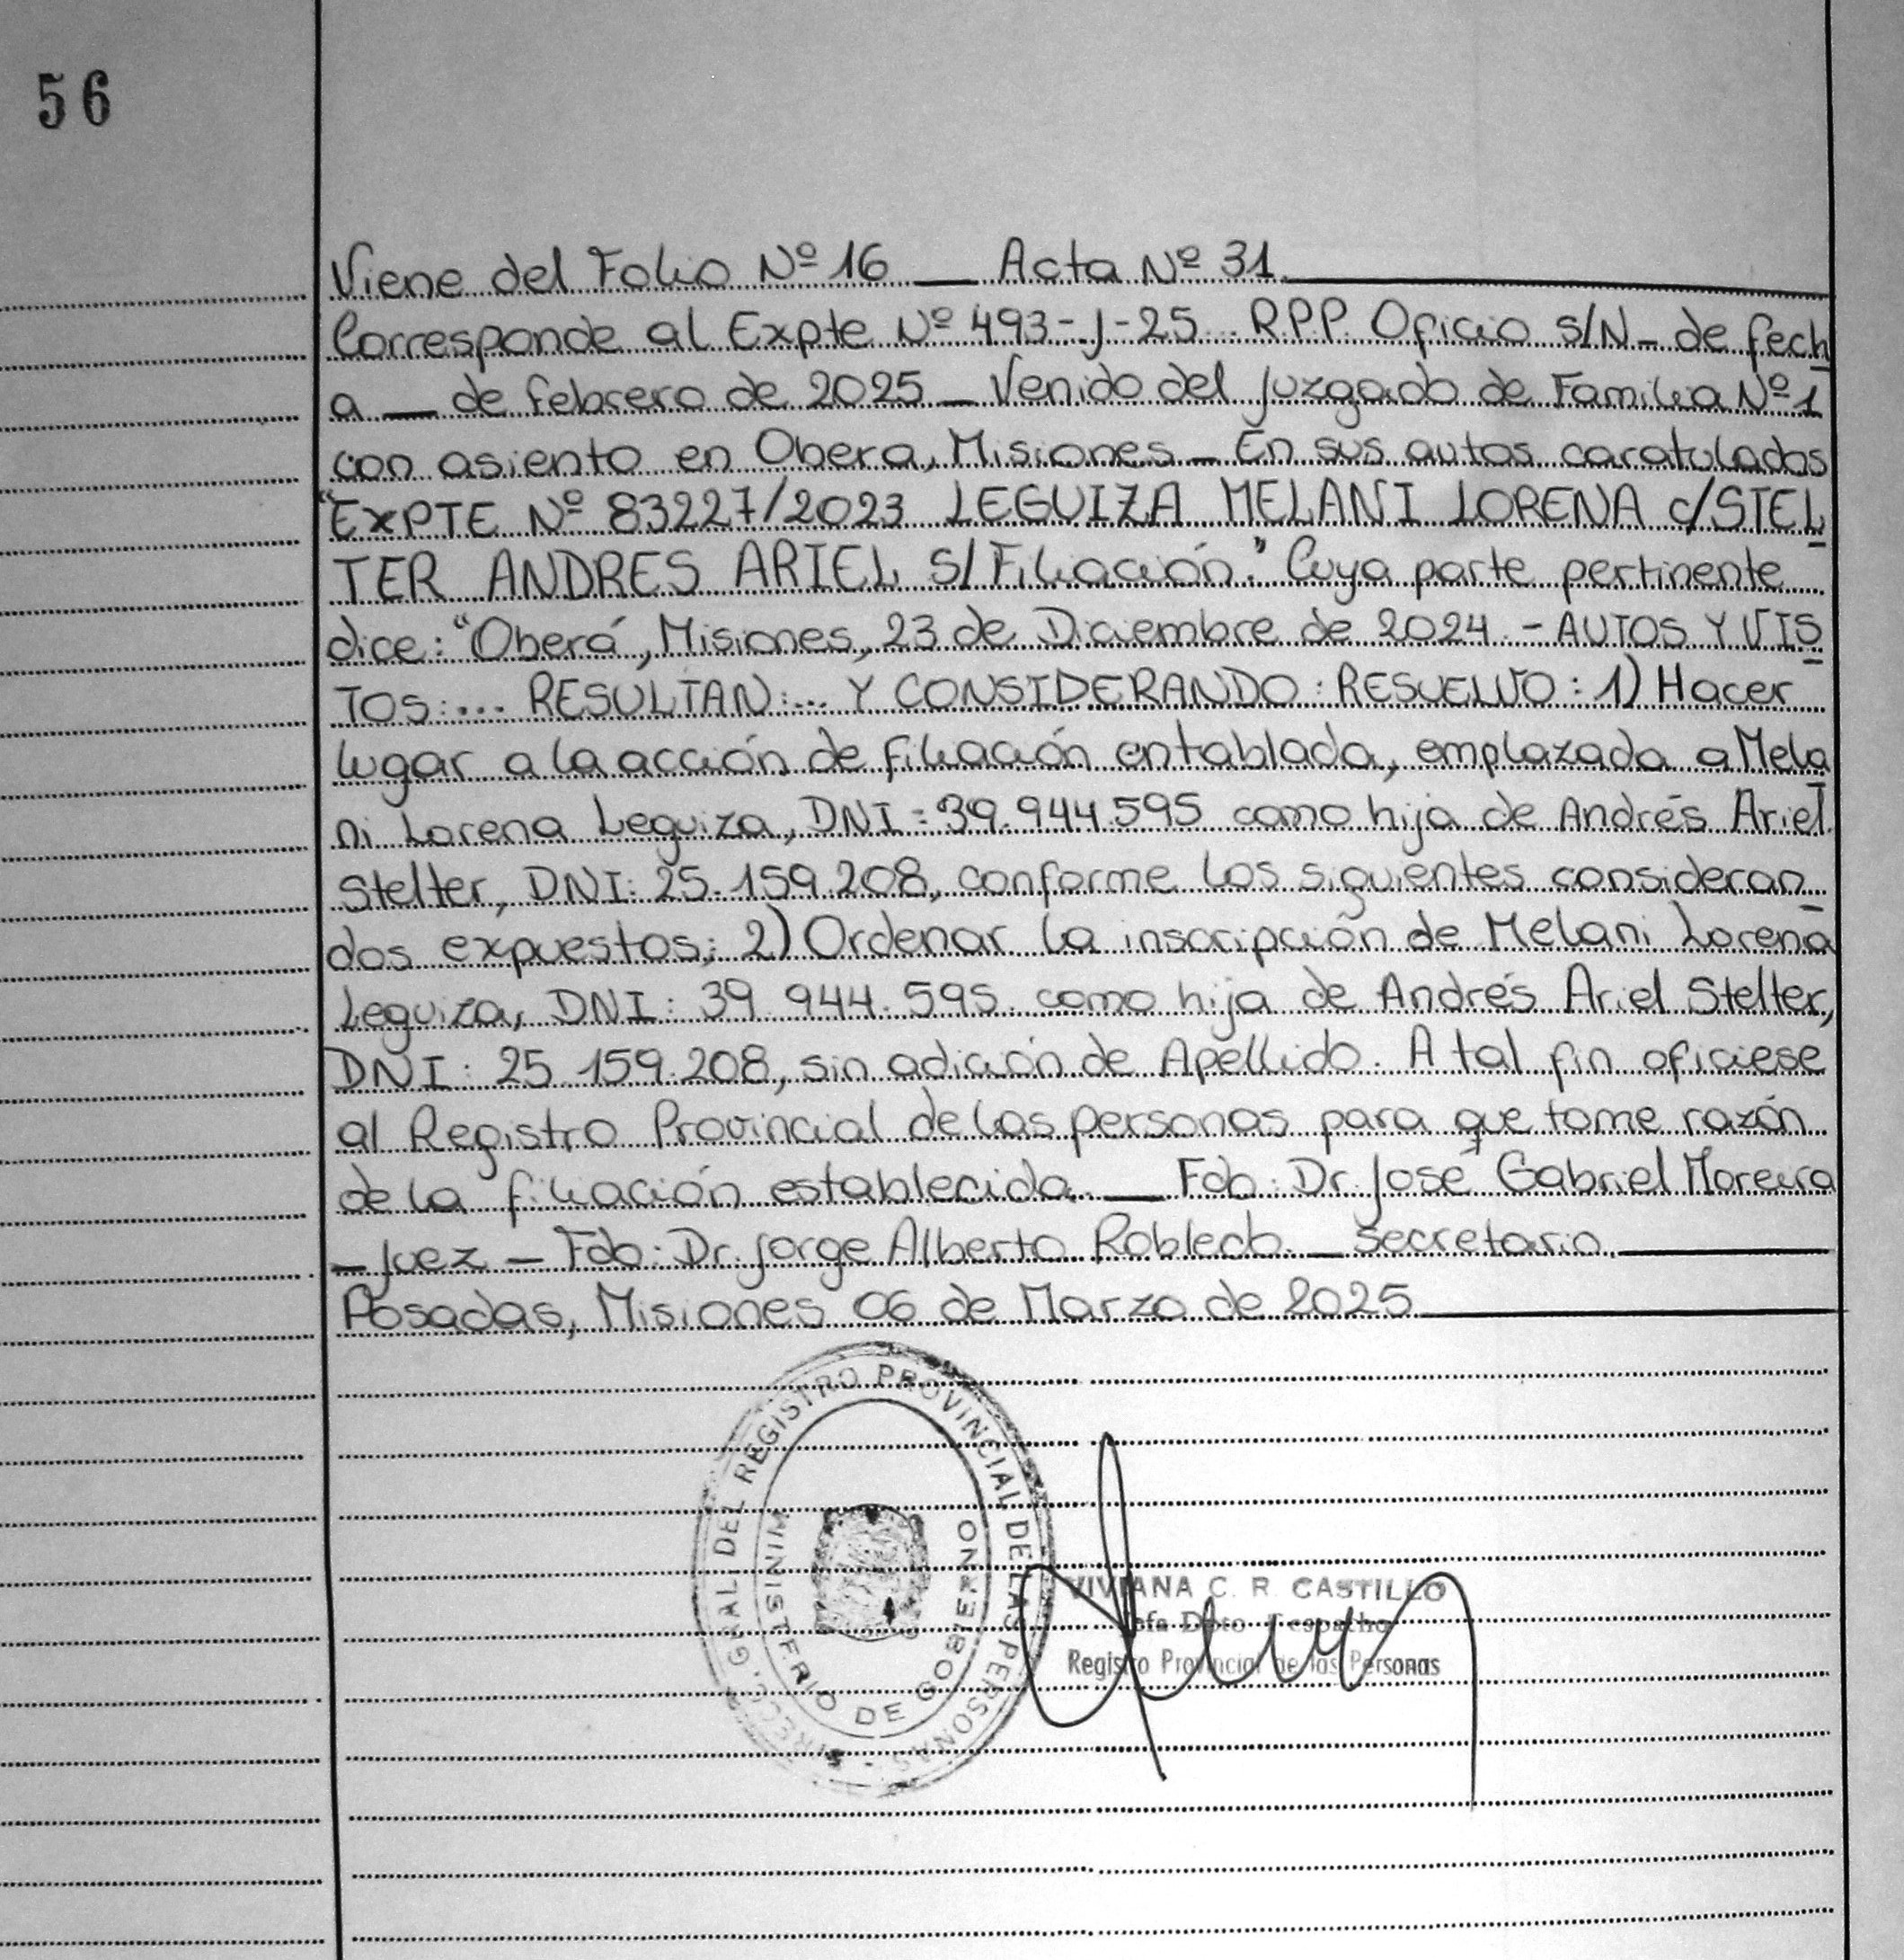 56
Viene del Folio Nº 16 — Acta Nº 31.
Corresponde al Expte Nº 493-J-25 R.P.P. Oficio S/N - de fech
a — de febrero de 2025 - Venido del Juzgado de Familia Nº 1
con asiento en Obera, Misiones - En sus autos caratulados
"EXPTE Nº 83227/2023 LEGUIZA MELANI LORENA c/STEL
TER ANDRES ARIEL S/Filiación." Cuya parte pertinente
dice: "Oberá, Misiones, 23 de Diciembre de 2024 - AUTOS Y VIS
TOS:... RESULTAN:... Y CONSIDERANDO: RESUELVO: 1) Hacer
lugar a la acción de filiación entablada, emplazada a Mela
ni Lorena Leguiza, DNI: 39.944.595 como hija de Andrés Ariel
Stelter, DNI: 25.159.208, conforme los siguientes consideran
dos expuestos; 2) Ordenar la inscripción de Melani Lorena
Leguiza, DNI: 39.944.595 como hija de Andrés Ariel Stelter,
DNI: 25.159.208, sin adición de Apellido. A tal fin ofíciese
al Registro Provincial de las personas para que tome razón
de la filiación establecida. — Fdo: Dr. José Gabriel Moreira
- Juez - Fdo: Dr. Jorge Alberto Robledo - Secretario.
Posadas, Misiones 06 de Marzo de 2025
DIRECC. GRAL. DEL REGISTRO PROVINCIAL DE LAS PERSONAS
MINISTERIO DE GOBIERNO
VIVIANA C. R. CASTILLO
Jefa Dpto Despacho
Registro Provincial de las Personas